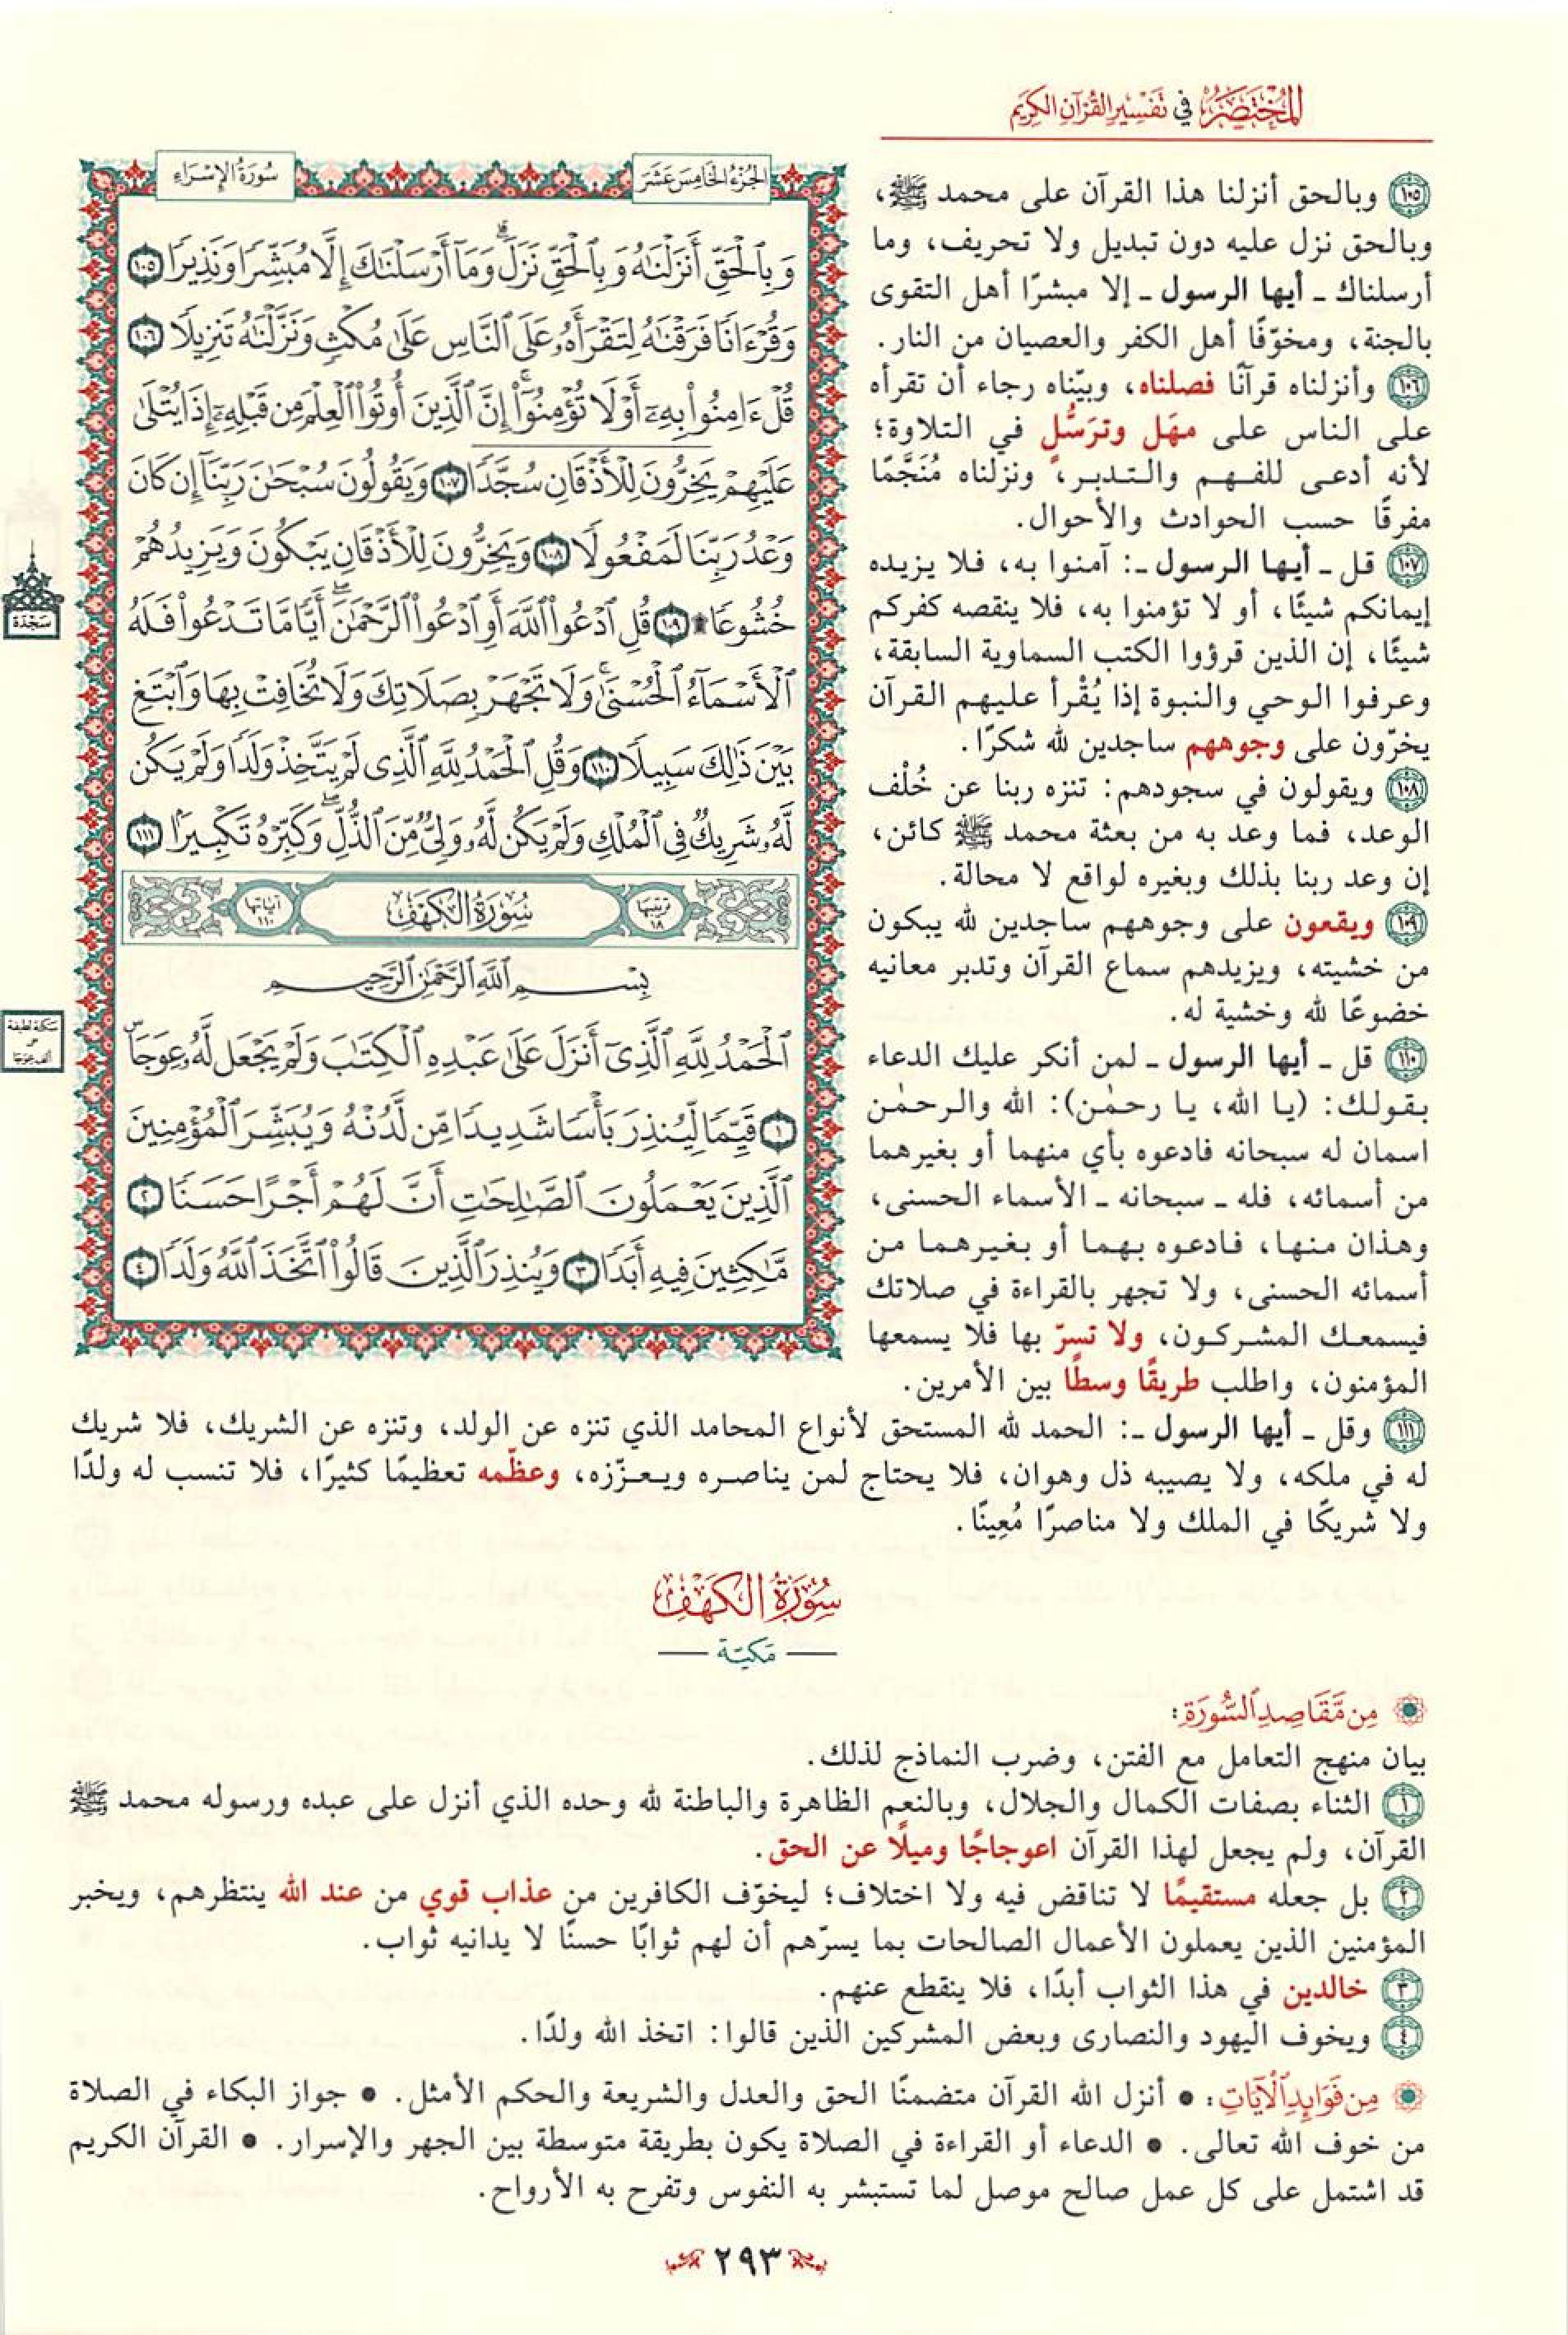 المختصر في تفسير القرآن الكريم
الجزء الخامس عشر
سورة الإسراء
وَبِٱلْحَقِّ أَنزَلْنَٰهُ وَبِٱلْحَقِّ نَزَلَ ۗ وَمَآ أَرْسَلْنَٰكَ إِلَّا مُبَشِّرًا وَنَذِيرًا ١٠٥
وَقُرْءَانًا فَرَقْنَٰهُ لِتَقْرَأَهُۥ عَلَى ٱلنَّاسِ عَلَىٰ مُكْثٍ وَنَزَّلْنَٰهُ تَنزِيلًا ١٠٦
قُلْ ءَامِنُوا۟ بِهِۦٓ أَوْ لَا تُؤْمِنُوٓا۟ ۚ إِنَّ ٱلَّذِينَ أُوتُوا۟ ٱلْعِلْمَ مِن قَبْلِهِۦٓ إِذَا يُتْلَىٰ
عَلَيْهِمْ يَخِرُّونَ لِلْأَذْقَانِ سُجَّدًا ١٠٧ وَيَقُولُونَ سُبْحَٰنَ رَبِّنَآ إِن كَانَ
وَعْدُ رَبِّنَا لَمَفْعُولًا ١٠٨ وَيَخِرُّونَ لِلْأَذْقَانِ يَبْكُونَ وَيَزِيدُهُمْ
خُشُوعًا ۩ ١٠٩ قُلِ ٱدْعُوا۟ ٱللَّهَ أَوِ ٱدْعُوا۟ ٱلرَّحْمَٰنَ ۖ أَيًّا مَّا تَدْعُوا۟ فَلَهُ
ٱلْأَسْمَآءُ ٱلْحُسْنَىٰ ۚ وَلَا تَجْهَرْ بِصَلَاتِكَ وَلَا تُخَافِتْ بِهَا وَٱبْتَغِ
بَيْنَ ذَٰلِكَ سَبِيلًا ١١٠ وَقُلِ ٱلْحَمْدُ لِلَّهِ ٱلَّذِى لَمْ يَتَّخِذْ وَلَدًا وَلَمْ يَكُن
لَّهُۥ شَرِيكٌ فِى ٱلْمُلْكِ وَلَمْ يَكُن لَّهُۥ وَلِىٌّ مِّنَ ٱلذُّلِّ ۖ وَكَبِّرْهُ تَكْبِيرًا ١١١
ترتيبها ١٨
سورة الكهف
آياتها ١١٠
بِسْمِ ٱللَّهِ ٱلرَّحْمَٰنِ ٱلرَّحِيمِ
ٱلْحَمْدُ لِلَّهِ ٱلَّذِىٓ أَنزَلَ عَلَىٰ عَبْدِهِ ٱلْكِتَٰبَ وَلَمْ يَجْعَل لَّهُۥ عِوَجَاۜ
١ قَيِّمًا لِّيُنذِرَ بَأْسًا شَدِيدًا مِّن لَّدُنْهُ وَيُبَشِّرَ ٱلْمُؤْمِنِينَ
ٱلَّذِينَ يَعْمَلُونَ ٱلصَّٰلِحَٰتِ أَنَّ لَهُمْ أَجْرًا حَسَنًا ٢
مَّٰكِثِينَ فِيهِ أَبَدًا ٣ وَيُنذِرَ ٱلَّذِينَ قَالُوا۟ ٱتَّخَذَ ٱللَّهُ وَلَدًا ٤
سجدة
سكتة لطيفة
على
ألف عوجا
١٠٥ وبالحق أنزلنا هذا القرآن على محمد ﷺ،
وبالحق نزل عليه دون تبديل ولا تحريف، وما
أرسلناك ـ أيها الرسول ـ إلا مبشرًا أهل التقوى
بالجنة، ومخوّفًا أهل الكفر والعصيان من النار.
١٠٦ وأنزلناه قرآنًا فصلناه، وبيّناه رجاء أن تقرأه
على الناس على مهَل وترَسُّلٍ في التلاوة؛
لأنه أدعى للفهم والتدبر، ونزلناه مُنَجَّمًا
مفرقًا حسب الحوادث والأحوال.
١٠٧ قل ـ أيها الرسول ـ: آمنوا به، فلا يزيده
إيمانكم شيئًا، أو لا تؤمنوا به، فلا ينقصه كفركم
شيئًا، إن الذين قرؤوا الكتب السماوية السابقة،
وعرفوا الوحي والنبوة إذا يُقْرأ عليهم القرآن
يخرّون على وجوههم ساجدين لله شكرًا.
١٠٨ ويقولون في سجودهم: تنزه ربنا عن خُلْف
الوعد، فما وعد به من بعثة محمد ﷺ كائن،
إن وعد ربنا بذلك وبغيره لواقع لا محالة.
١٠٩ ويقعون على وجوههم ساجدين لله يبكون
من خشيته، ويزيدهم سماع القرآن وتدبر معانيه
خضوعًا لله وخشية له.
١١٠ قل ـ أيها الرسول ـ لمن أنكر عليك الدعاء
بقولك: (يا الله، يا رحمٰن): الله والرحمٰن
اسمان له سبحانه فادعوه بأي منهما أو بغيرهما
من أسمائه، فله ـ سبحانه ـ الأسماء الحسنى،
وهذان منها، فادعوه بهما أو بغيرهما من
أسمائه الحسنى، ولا تجهر بالقراءة في صلاتك
فيسمعك المشركون، ولا تسرّ بها فلا يسمعها
المؤمنون، واطلب طريقًا وسطًا بين الأمرين.
١١١ وقل ـ أيها الرسول ـ: الحمد لله المستحق لأنواع المحامد الذي تنزه عن الولد، وتنزه عن الشريك، فلا شريك
له في ملكه، ولا يصيبه ذل وهوان، فلا يحتاج لمن يناصره ويعزّزه، وعظّمه تعظيمًا كثيرًا، فلا تنسب له ولدًا
ولا شريكًا في الملك ولا مناصرًا مُعِينًا.
سورة الكهف
مكية
من مقاصد السورة:
بيان منهج التعامل مع الفتن، وضرب النماذج لذلك.
١ الثناء بصفات الكمال والجلال، وبالنعم الظاهرة والباطنة لله وحده الذي أنزل على عبده ورسوله محمد ﷺ
القرآن، ولم يجعل لهذا القرآن اعوجاجًا وميلًا عن الحق.
٢ بل جعله مستقيمًا لا تناقض فيه ولا اختلاف؛ ليخوّف الكافرين من عذاب قوي من عند الله ينتظرهم، ويخبر
المؤمنين الذين يعملون الأعمال الصالحات بما يسرّهم أن لهم ثوابًا حسنًا لا يدانيه ثواب.
٣ خالدين في هذا الثواب أبدًا، فلا ينقطع عنهم.
٤ ويخوف اليهود والنصارى وبعض المشركين الذين قالوا: اتخذ الله ولدًا.
من فوائد الآيات: • أنزل الله القرآن متضمنًا الحق والعدل والشريعة والحكم الأمثل. • جواز البكاء في الصلاة
من خوف الله تعالى. • الدعاء أو القراءة في الصلاة يكون بطريقة متوسطة بين الجهر والإسرار. • القرآن الكريم
قد اشتمل على كل عمل صالح موصل لما تستبشر به النفوس وتفرح به الأرواح.
٢٩٣